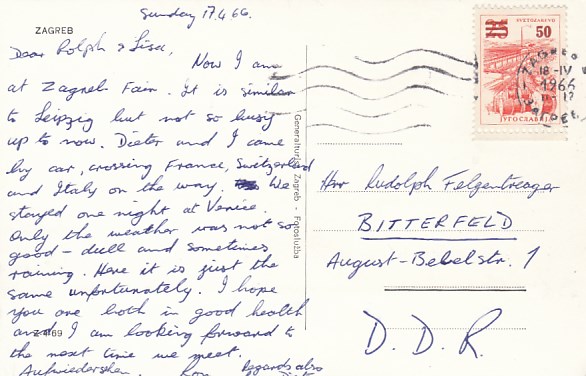 Sunday 17.4.66.
ZAGREB
Dear Rolph & Lisa,
Now I am
at Zagreb Fair. It is similar
to Leipzig but not so busy
up to now. Dieter and I came
by car, crossing France, Switzerland
and Italy on the way. We
stayed one night at Venice.
Only the weather was not so
good - dull and sometimes
raining. Here it is just the
same unfortunately. I hope
you are both in good health
and I am looking forward to
the next time we meet.
Aufwiedersehen. Ron
Regards also
Generalturist Zagreb - Fotoslužba
50
JUGOSLAVIJA
ZAGREB
18-IV
1966
Herr Rudolph Felgentreager
BITTERFELD
August-Bebelstr. 1
D. D. R.